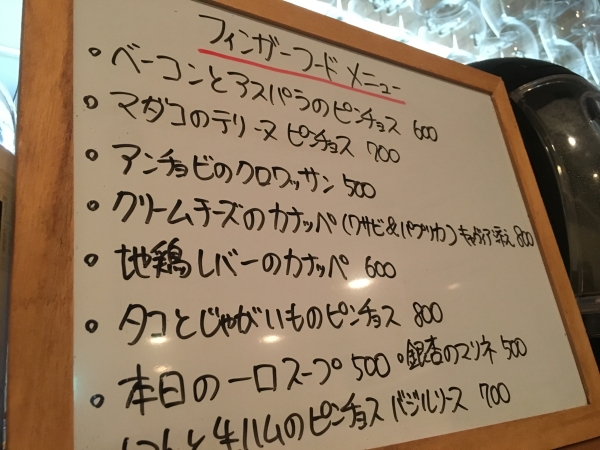 フィンガーフード メニュー
・ベーコンとアスパラのピンチョス 600
・マダコのテリーヌ ピンチョス 700
・アンチョビのクロワッサン 500
・クリームチーズのカナッペ(ワサビ&パプリカ)キャビア添え 800
・地鶏レバーのカナッペ 600
・タコとじゃがいものピンチョス 800
・本日の一口スープ 500 ・銀杏のマリネ 500
と生ハムのピンチョス バジルソース 700